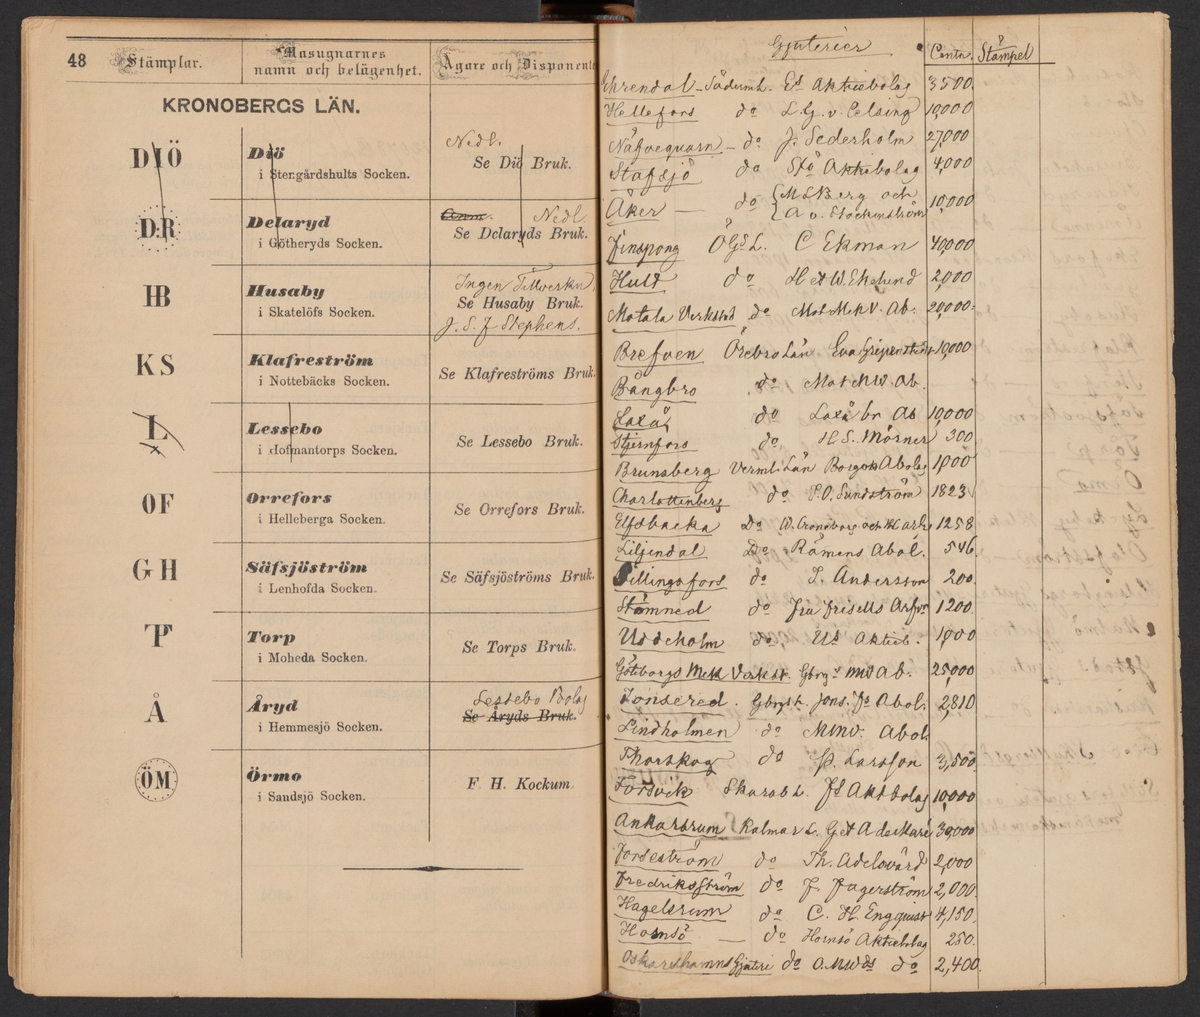 48
Stämplar.
Masugnarnes
namn och belägenhet.
Ägare och Disponente
KRONOBERGS LÄN.
DIÖ
Diö
i Stengårdshults Socken.
Nedl.
Se Diö Bruk.
D.R
Delaryd
i Götheryds Socken.
Nedl.
Se Delaryds Bruk.
HB
Husaby
i Skatelöfs Socken.
Ingen Tillverkn.
Se Husaby Bruk.
J. S. F Stephens.
KS
Klafreström
i Nottebäcks Socken.
Se Klafreströms Bruk.
L
Lessebo
i Hofmantorps Socken.
Se Lessebo Bruk.
OF
Orrefors
i Helleberga Socken.
Se Orrefors Bruk.
GH
Säfsjöström
i Lenhofda Socken.
Se Säfsjöströms Bruk.
TP
Torp
i Moheda Socken.
Se Torps Bruk.
Å
Åryd
i Hemmesjö Socken.
Lessebo Bolag
Se Åryds Bruk.
ÖM
Örmo
i Sandsjö Socken.
F. H. Kockum.
Gjuterier
Centn. Stämpel
Ehrendal - Söderml. Es Aktiebolag 3500.
Hellefors do L. G. v. Celsing 10,000
Näfvequarn - do J. Sederholm 27,000
Stafsjö do Stö Aktiebolag 4,000
Åker - do M L Berg och 10,000
A v. Stockenström
Finspong ÖGs L. C Ekman 40,000
Huld do H et W. Ekelund 2,000
Motala Verkstad do Mot Mek V. Ab. 20,000
Brefven Örebro Län Eva Gripenstedt 10,000
Bångbro do Mot MW. Ab.
Laxå do Laxå br Ab 10,000
Stjernfors do H S. Mörner 300
Brunsberg Vermls Län Borgvs Abolag 1,000
Charlottenberg do P. O. Sundström 1823
Elfsbacka Do W. Croneborg och 1258
Liljendal Do Rämens Abol. 546
Billingsfors do L. Andersson 200
Stömned do Fru Frisells Arfvr 1200
Uddeholm do Us Aktieb. 1,000
Götborgs Mek Verkst. Gbrgs MW Ab. 25,000
Jonsered. Gbrgs L. Jons. Fs Abol. 2,810
Lindholmen do MWV. Abol.
Thorskog do P. Larsson 3,500
Forsvik Skarab L. Fs Akt bolag 10,000
Ankarsrum Kalmar L. G et A de Maré 30,000
Fordeström do Th. Adelswärd 2,000
Fredriksström do F. Fagerström 2,000
Hagelsrum do C. H. Engquist 4,150
Hornsö - do Hornsö Aktiebolag 250.
Oskarshamns Gjuteri do O. MWds do 2,400